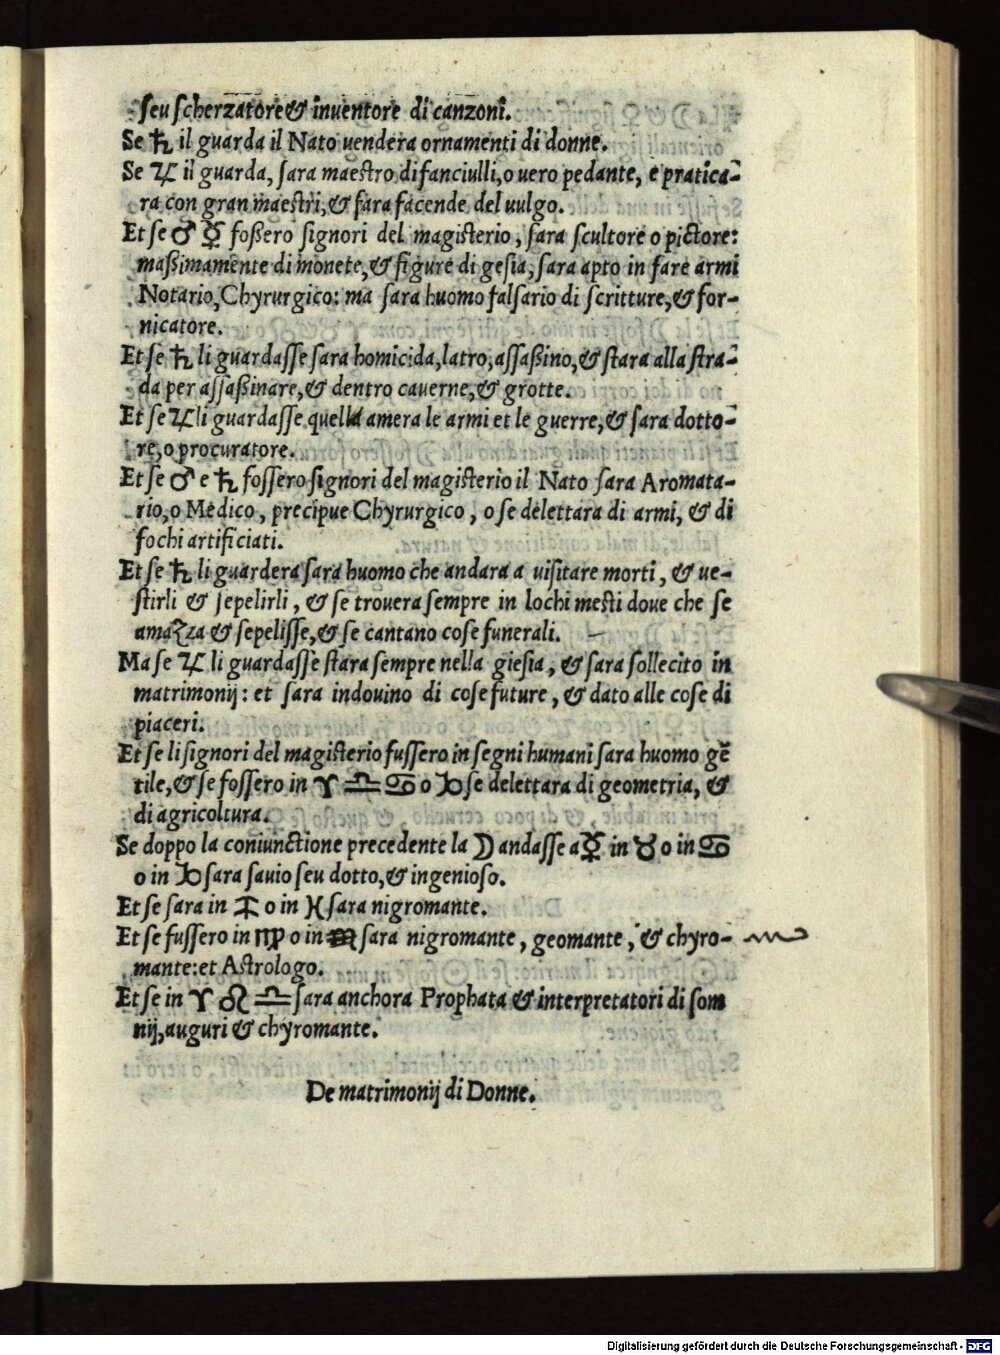 seu scherzatore & inuentore di canzoni.
Se ♄ il guarda il Nato uendera ornamenti di donne.
Se ♃ il guarda, sara maestro di fanciulli, o uero pedante, e pratica-
ra con gran maestri, & fara facende del uulgo.
Et se ♂ ☿ foßero signori del magisterio, sara scultore o pictore:
maßimamente di monete, & figure di gesia, sara apto in fare armi
Notario, Chyrurgico: ma sara huomo falsario di scritture, & for-
nicatore.
Et se ♄ li guardasse sara homicida, latro, assaßino, & stara alla stra-
da per assaßinare, & dentro cauerne, & grotte.
Et se ♃ li guardasse quella amera le armi et le guerre, & sara dotto-
re, o procuratore.
Et se ♂ e ♄ fossero signori del magisterio il Nato sara Aromata-
rio, o Medico, precipue Chyrurgico, o se delettara di armi, & di
fochi artificiati.
Et se ♄ li guardera sara huomo che andara a uisitare morti, & ue-
stirli & sepelirli, & se trouera sempre in lochi mesti doue che se
amazza & sepelisse, & se cantano cose funerali.
Ma se ♃ li guardasse stara sempre nella giesia, & sara sollecito in
matrimonij: et sara indouino di cose future, & dato alle cose di
piaceri.
Et se li signori del magisterio fussero in segni humani sara huomo gẽ
tile, & se fossero in ♈ ♎ ♋ o ♑ se delettara di geometria, &
di agricoltura.
Se doppo la coniunctione precedente la ☽ andasse a ☿ in ♉ o in ♋
o in ♑ sara sauio seu dotto, & ingenioso.
Et se sara in ♐ o in ♓ sara nigromante.
Et se fussero in ♍ o in ♏ sara nigromante, geomante, & chyro-
mante: et Astrologo.
Et se in ♈ ♌ ♎ sara anchora Prophata & interpretatori di som
nij, auguri & chyromante.
De matrimonij di Donne.
Digitalisierung gefördert durch die Deutsche Forschungsgemeinschaft - DFG